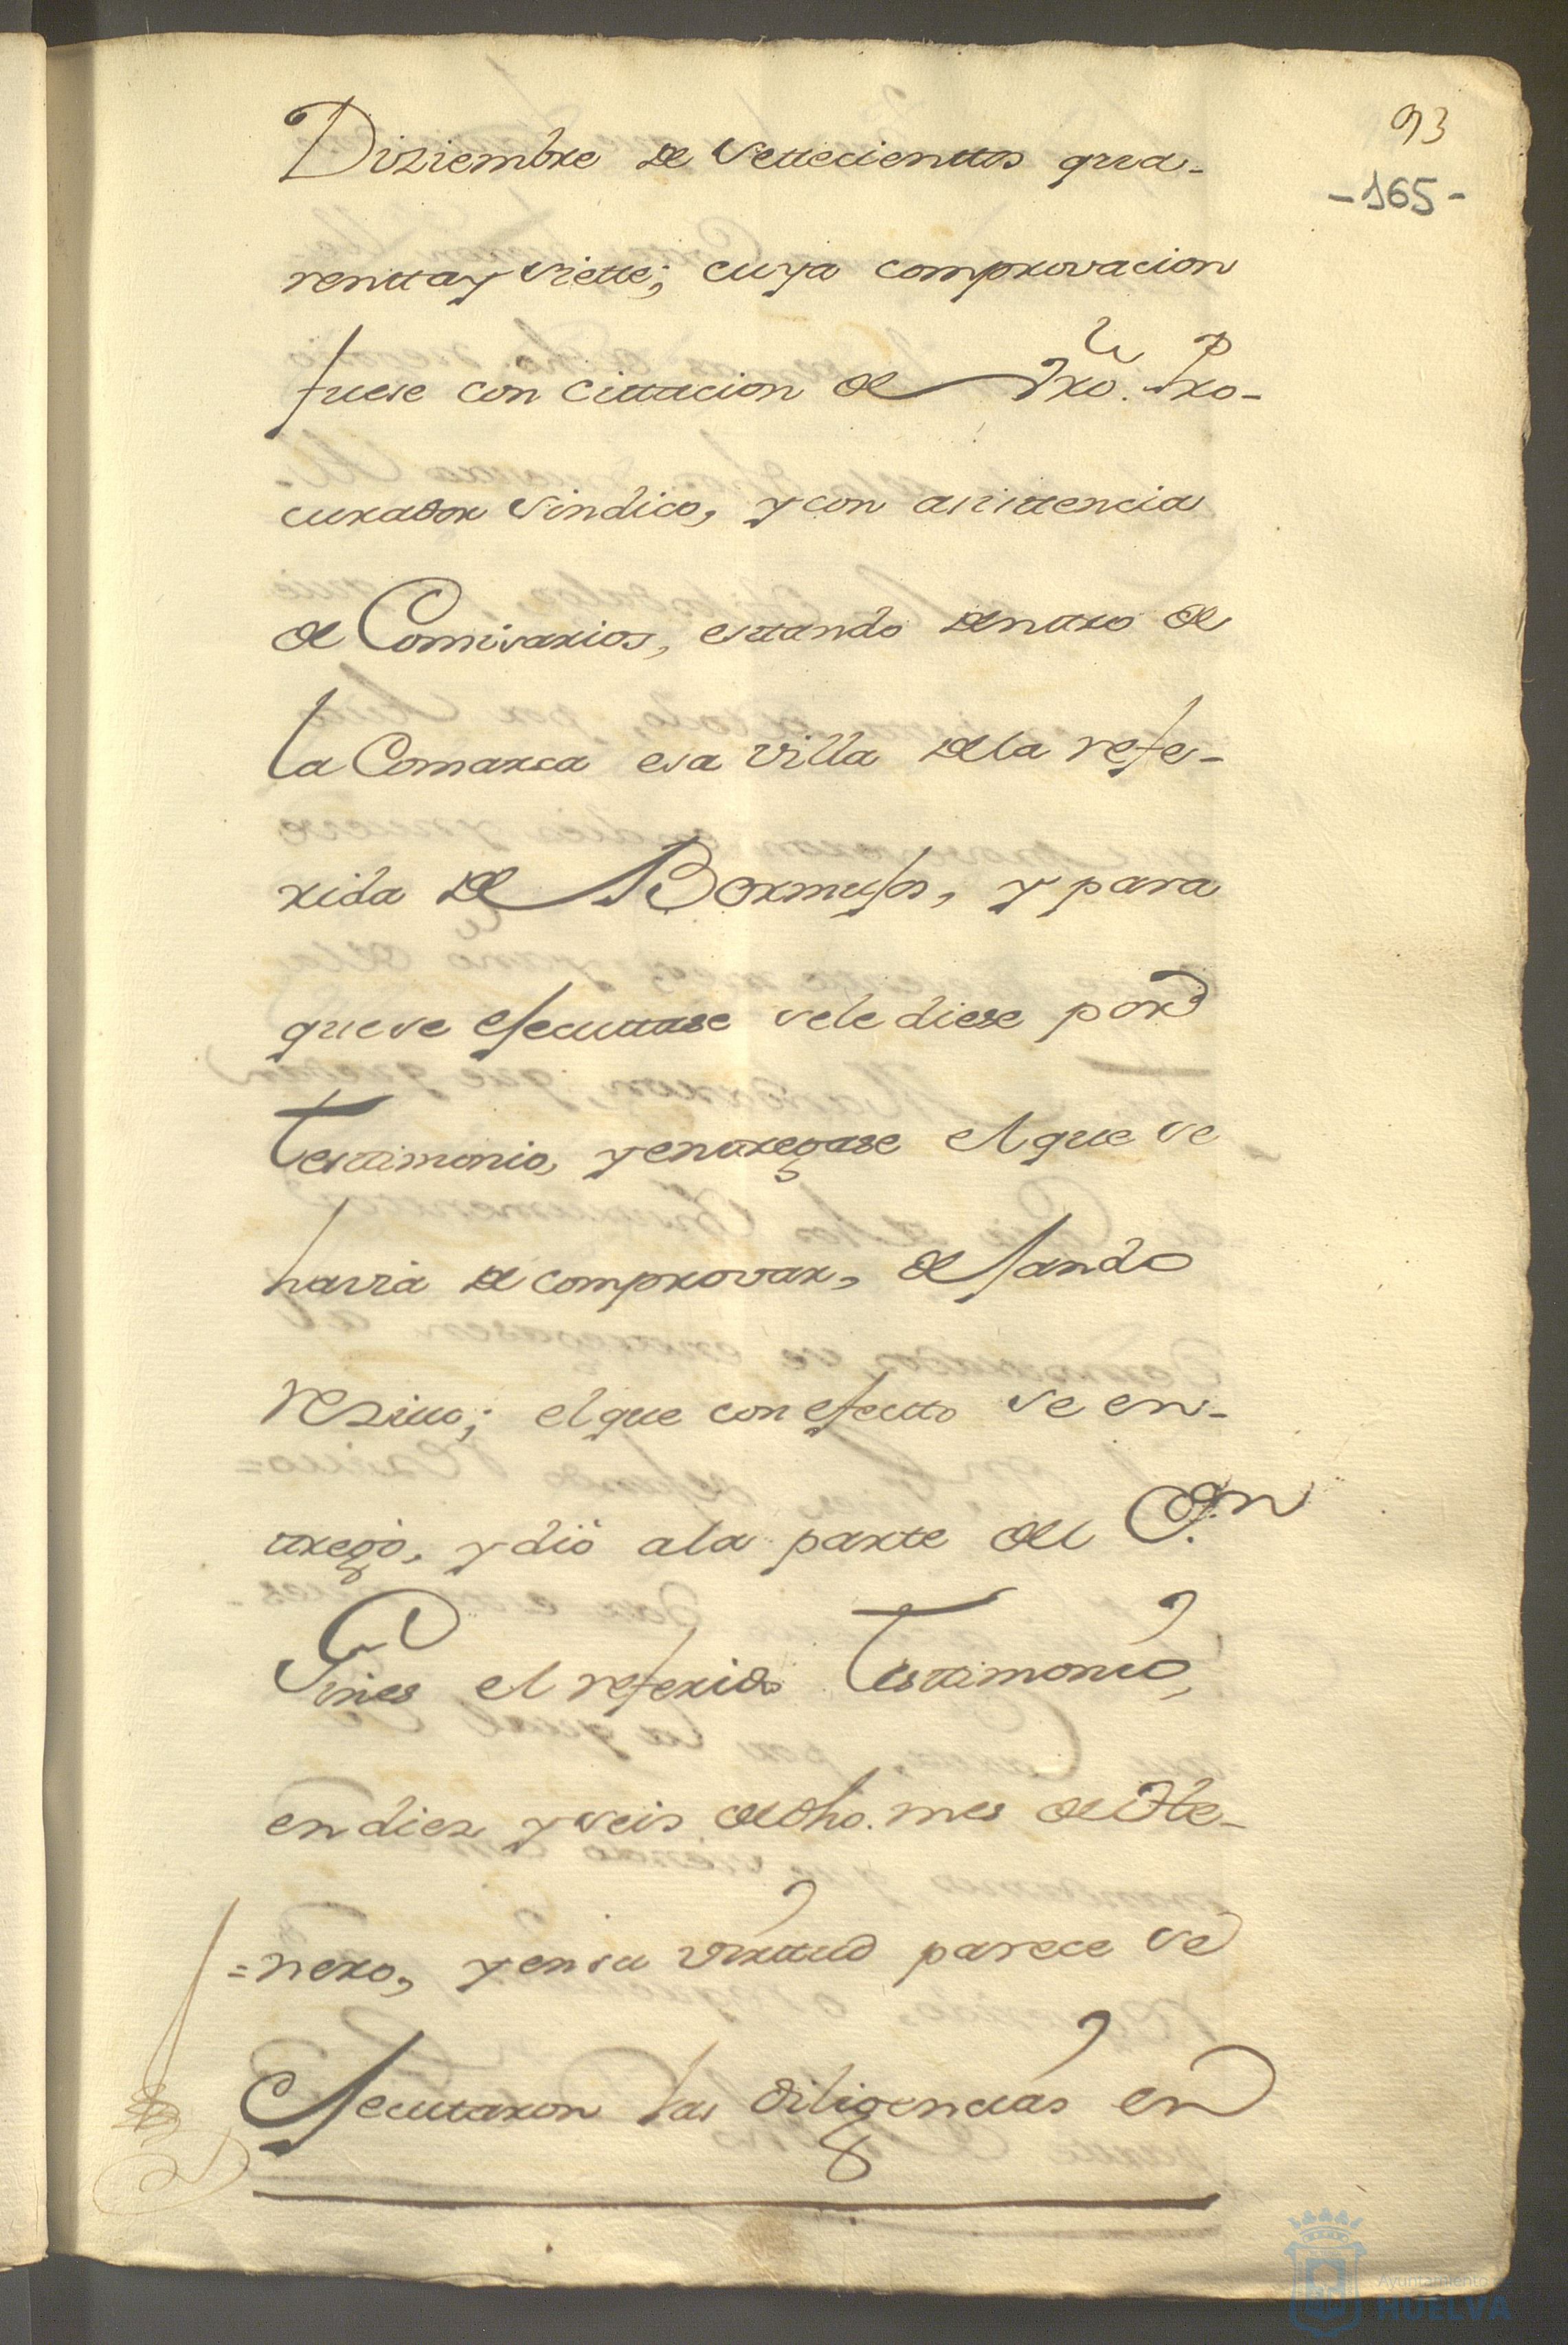 93
-165-
Diziembre de settecienttos qua-
renttay siette; cuya comprovacion
fuese con cittacion de nro. Pro-
curador Sindico, y con assistencia
de Comisarios, estando dentro de
la Comarca esa villa dela refe-
rida de Bormujos, y para
quese ejecuttase sele diese por
Testimonio, yentregase elque se
havia de comprovar, dejando
rezivo; elque con efectto se en-
tregó, y dió ala parte del
Gines el referido Testimonio,
en diez y seis de dho. mes de He-
=nero, y en su virttud parece se
Ejecutaron las diligencias en
Ayuntamiento
HUELVA